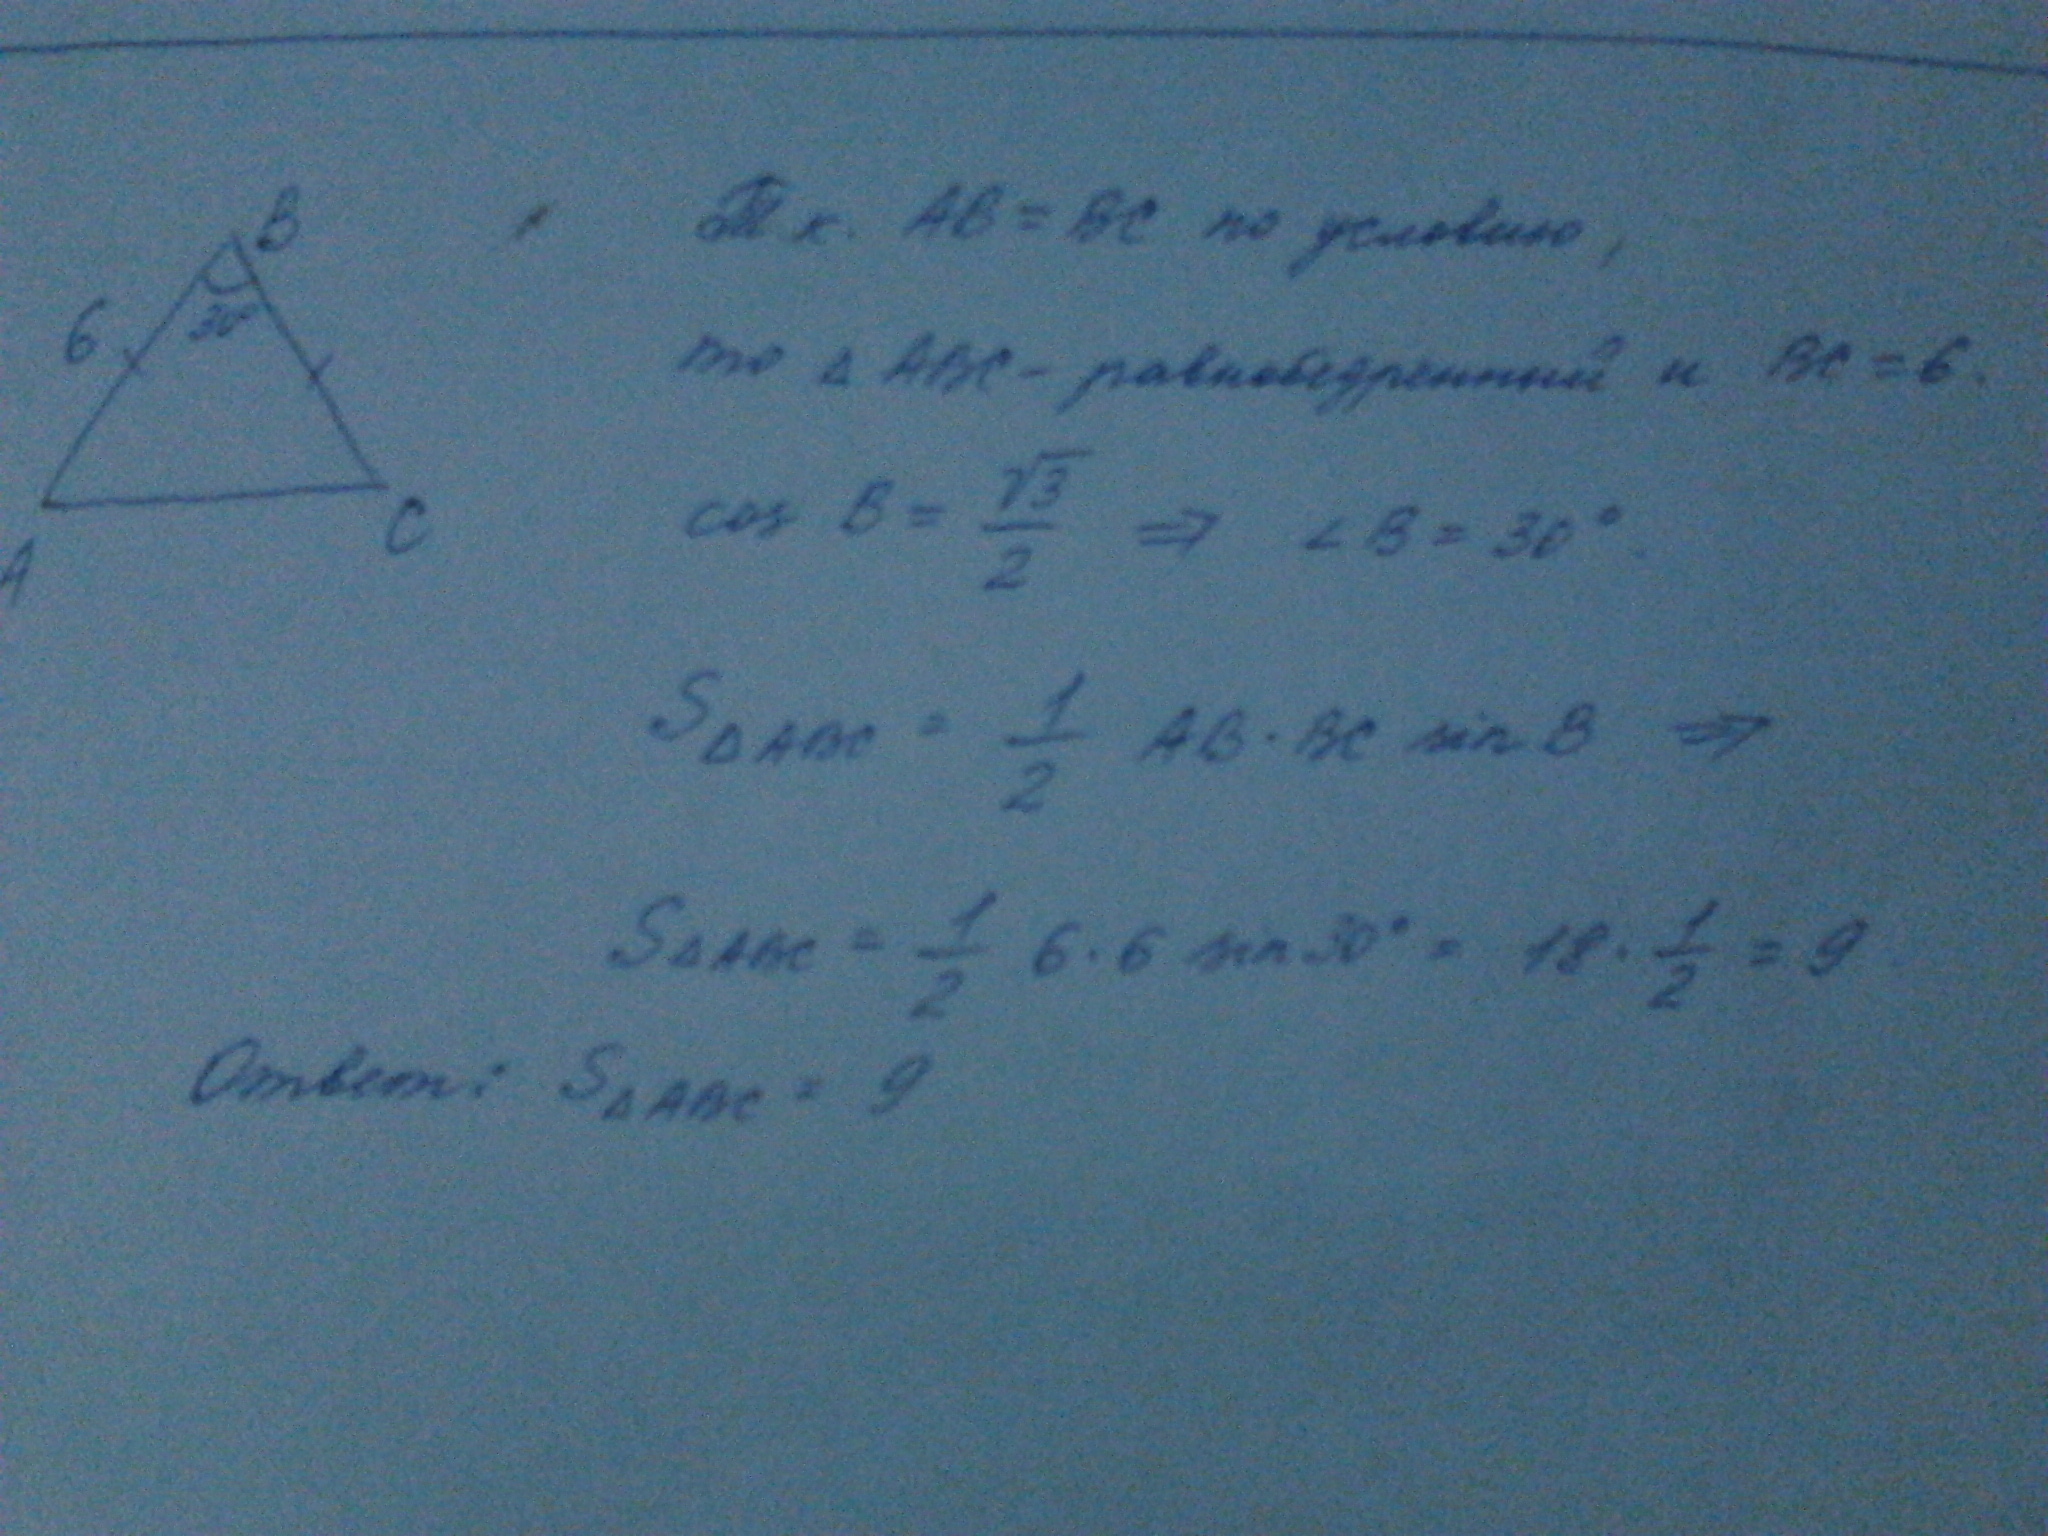 B
6
30°
A
C
Т.к. AB = BC по условию,
то △ ABC - равнобедренный и BC = 6.
cos B = √3/2 ⇒ ∠B = 30°.
S△ABC = 1/2 AB · BC sin B ⇒
S△ABC = 1/2 6 · 6 sin 30° = 18 · 1/2 = 9
Ответ: S△ABC = 9